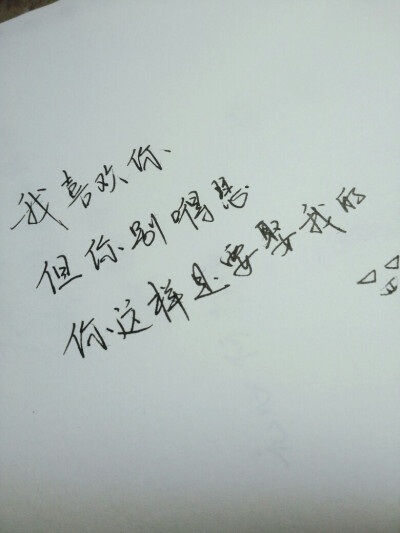 我喜欢你
但你别嘚瑟
你这样是要娶我的